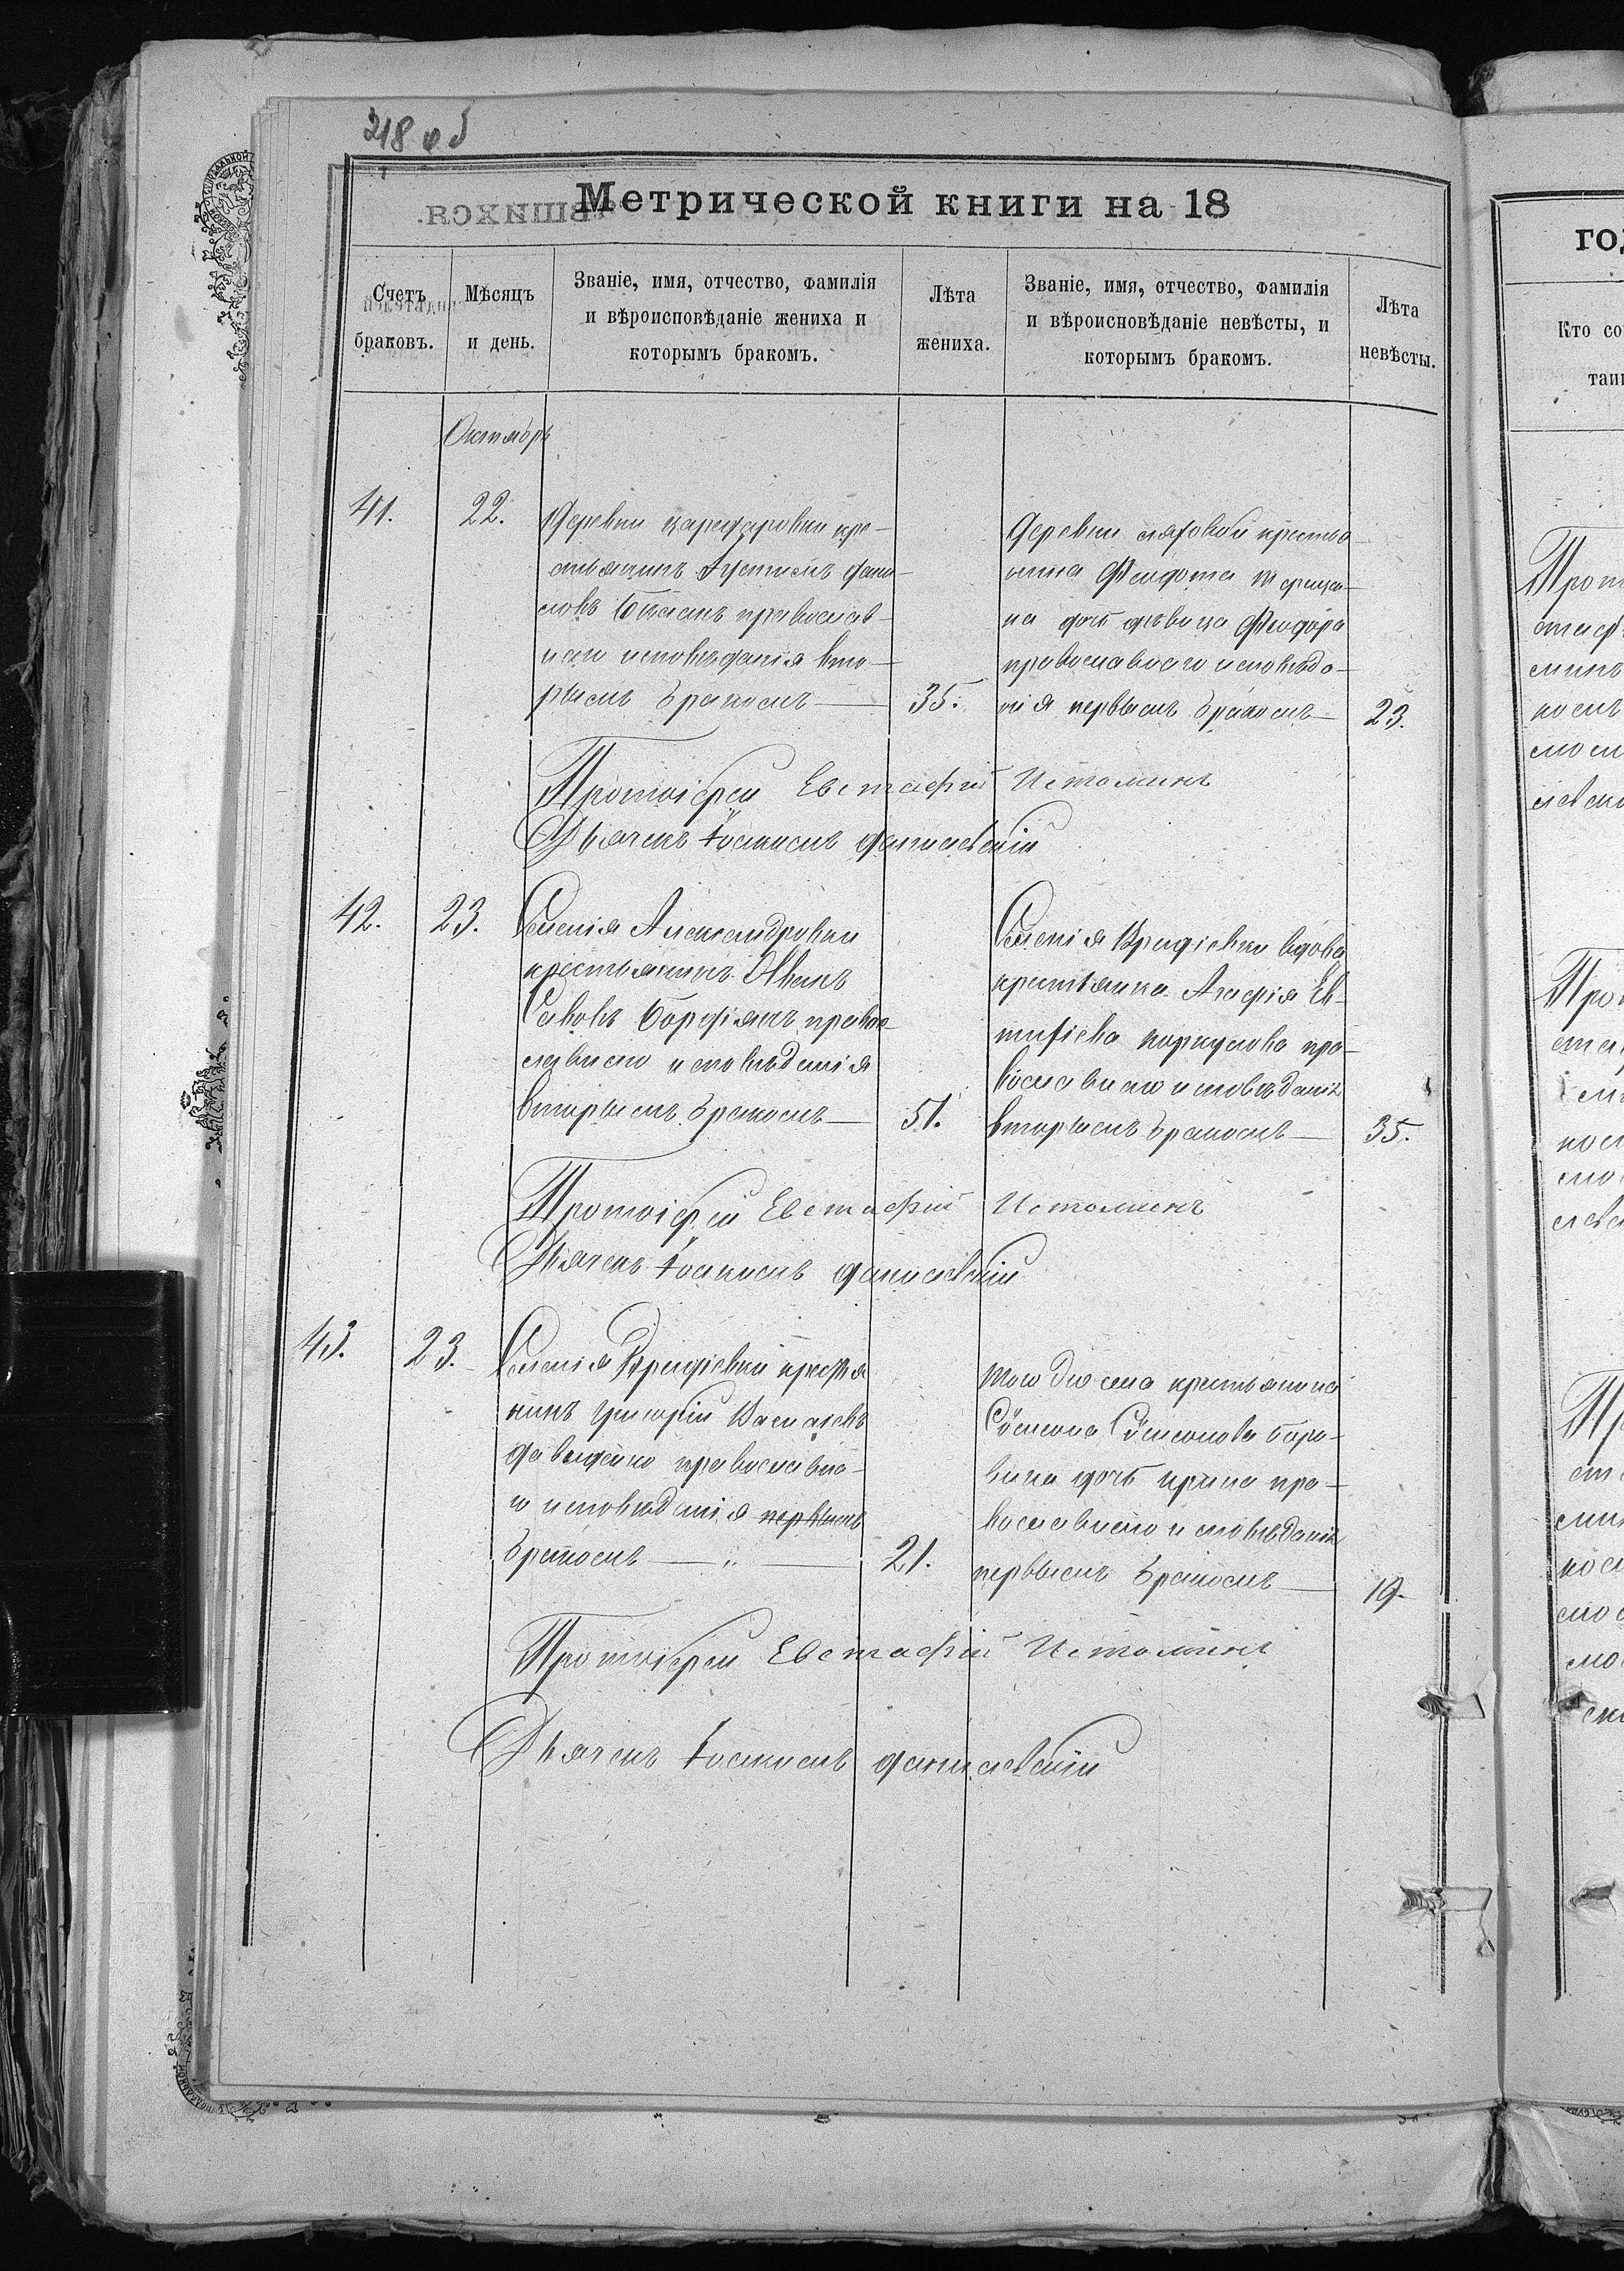 218 об
Метрической книги на 18
Счетъ браковъ.
Мѣсяцъ и день.
Званіе, имя, отчество, фамилія
и вѣроисповѣданіе жениха и
которымъ бракомъ.
Лѣта жениха.
Званіе, имя, отчество, фамилія
и вѣроисповѣданіе невѣсты, и
которымъ бракомъ.
Лѣта невѣсты.
Октябрь
41.
22.
Деревни царедаровки кре-
стьянинъ Густимъ Дани-
ловъ православ-
наго исповѣданія вто-
рымъ бракомъ
35.
Деревни крестья-
нина Феодота
на дочь дѣвица Феодора
православнаго исповѣда-
нія первымъ бракомъ
23.
Протоіерей Евстафій Истоминъ
Дьячекъ Іоакимъ Данилевскій
42.
23.
Селенія Александровки
крестьянинъ Иванъ
Савовъ православ-
славнаго исповѣданія
вторымъ бракомъ
51.
Селенія вдова
крестьянка Агафія Ев-
тифіева пра-
вославнаго исповѣданія
вторымъ бракомъ
35.
Протоіерей Евстафій Истоминъ
Дьячекъ Іоакимъ Данилевскій
43.
23.
Селенія крестья
нинъ Григорій Васильевъ
Давыденко православна-
го исповѣданія первымъ
бракомъ
21.
того же села крестьянина
Сѵмеона Сѵмеонова
дочь Ирина пра-
вославнаго исповѣданія
первымъ бракомъ
19.
Протоіерей Евстафій Истоминъ
Дьячекъ Іоакимъ Данилевскій
го
Кто со
таи